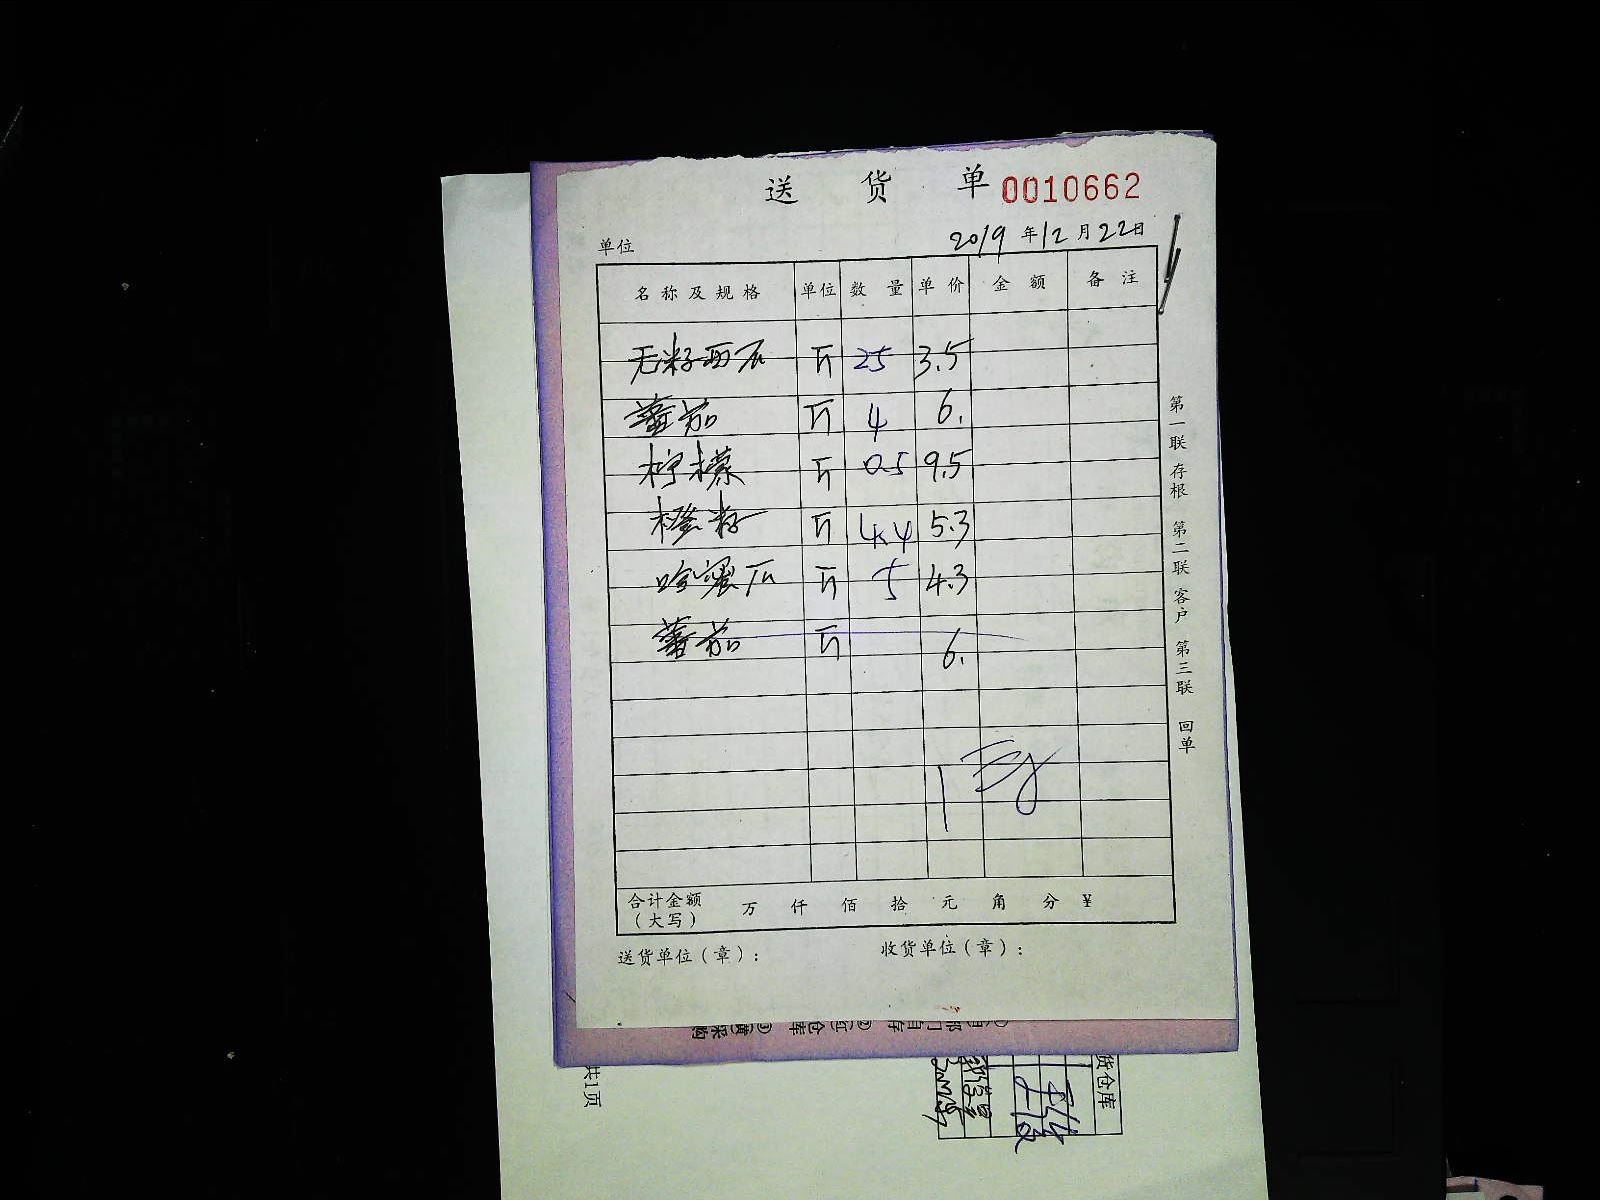 送货单 0010662
单位 2019年12月22日
名称及规格 单位 数量 单价 金额 备注
无籽西瓜 斤 25 3.5
蕃茄 斤 4 6.
柠檬 斤 0.5 9.5
橙籽 斤 4.4 5.3
哈蜜瓜 斤 5 4.3
蕃茄 斤 6.
合计金额（大写） 万 仟 佰 拾 元 角 分 ¥
送货单位（章）： 收货单位（章）：
第一联 存根 第二联 客户 第三联 回单
部门自存 ②(红)仓库 ③(黄)采购
货仓库
共1页